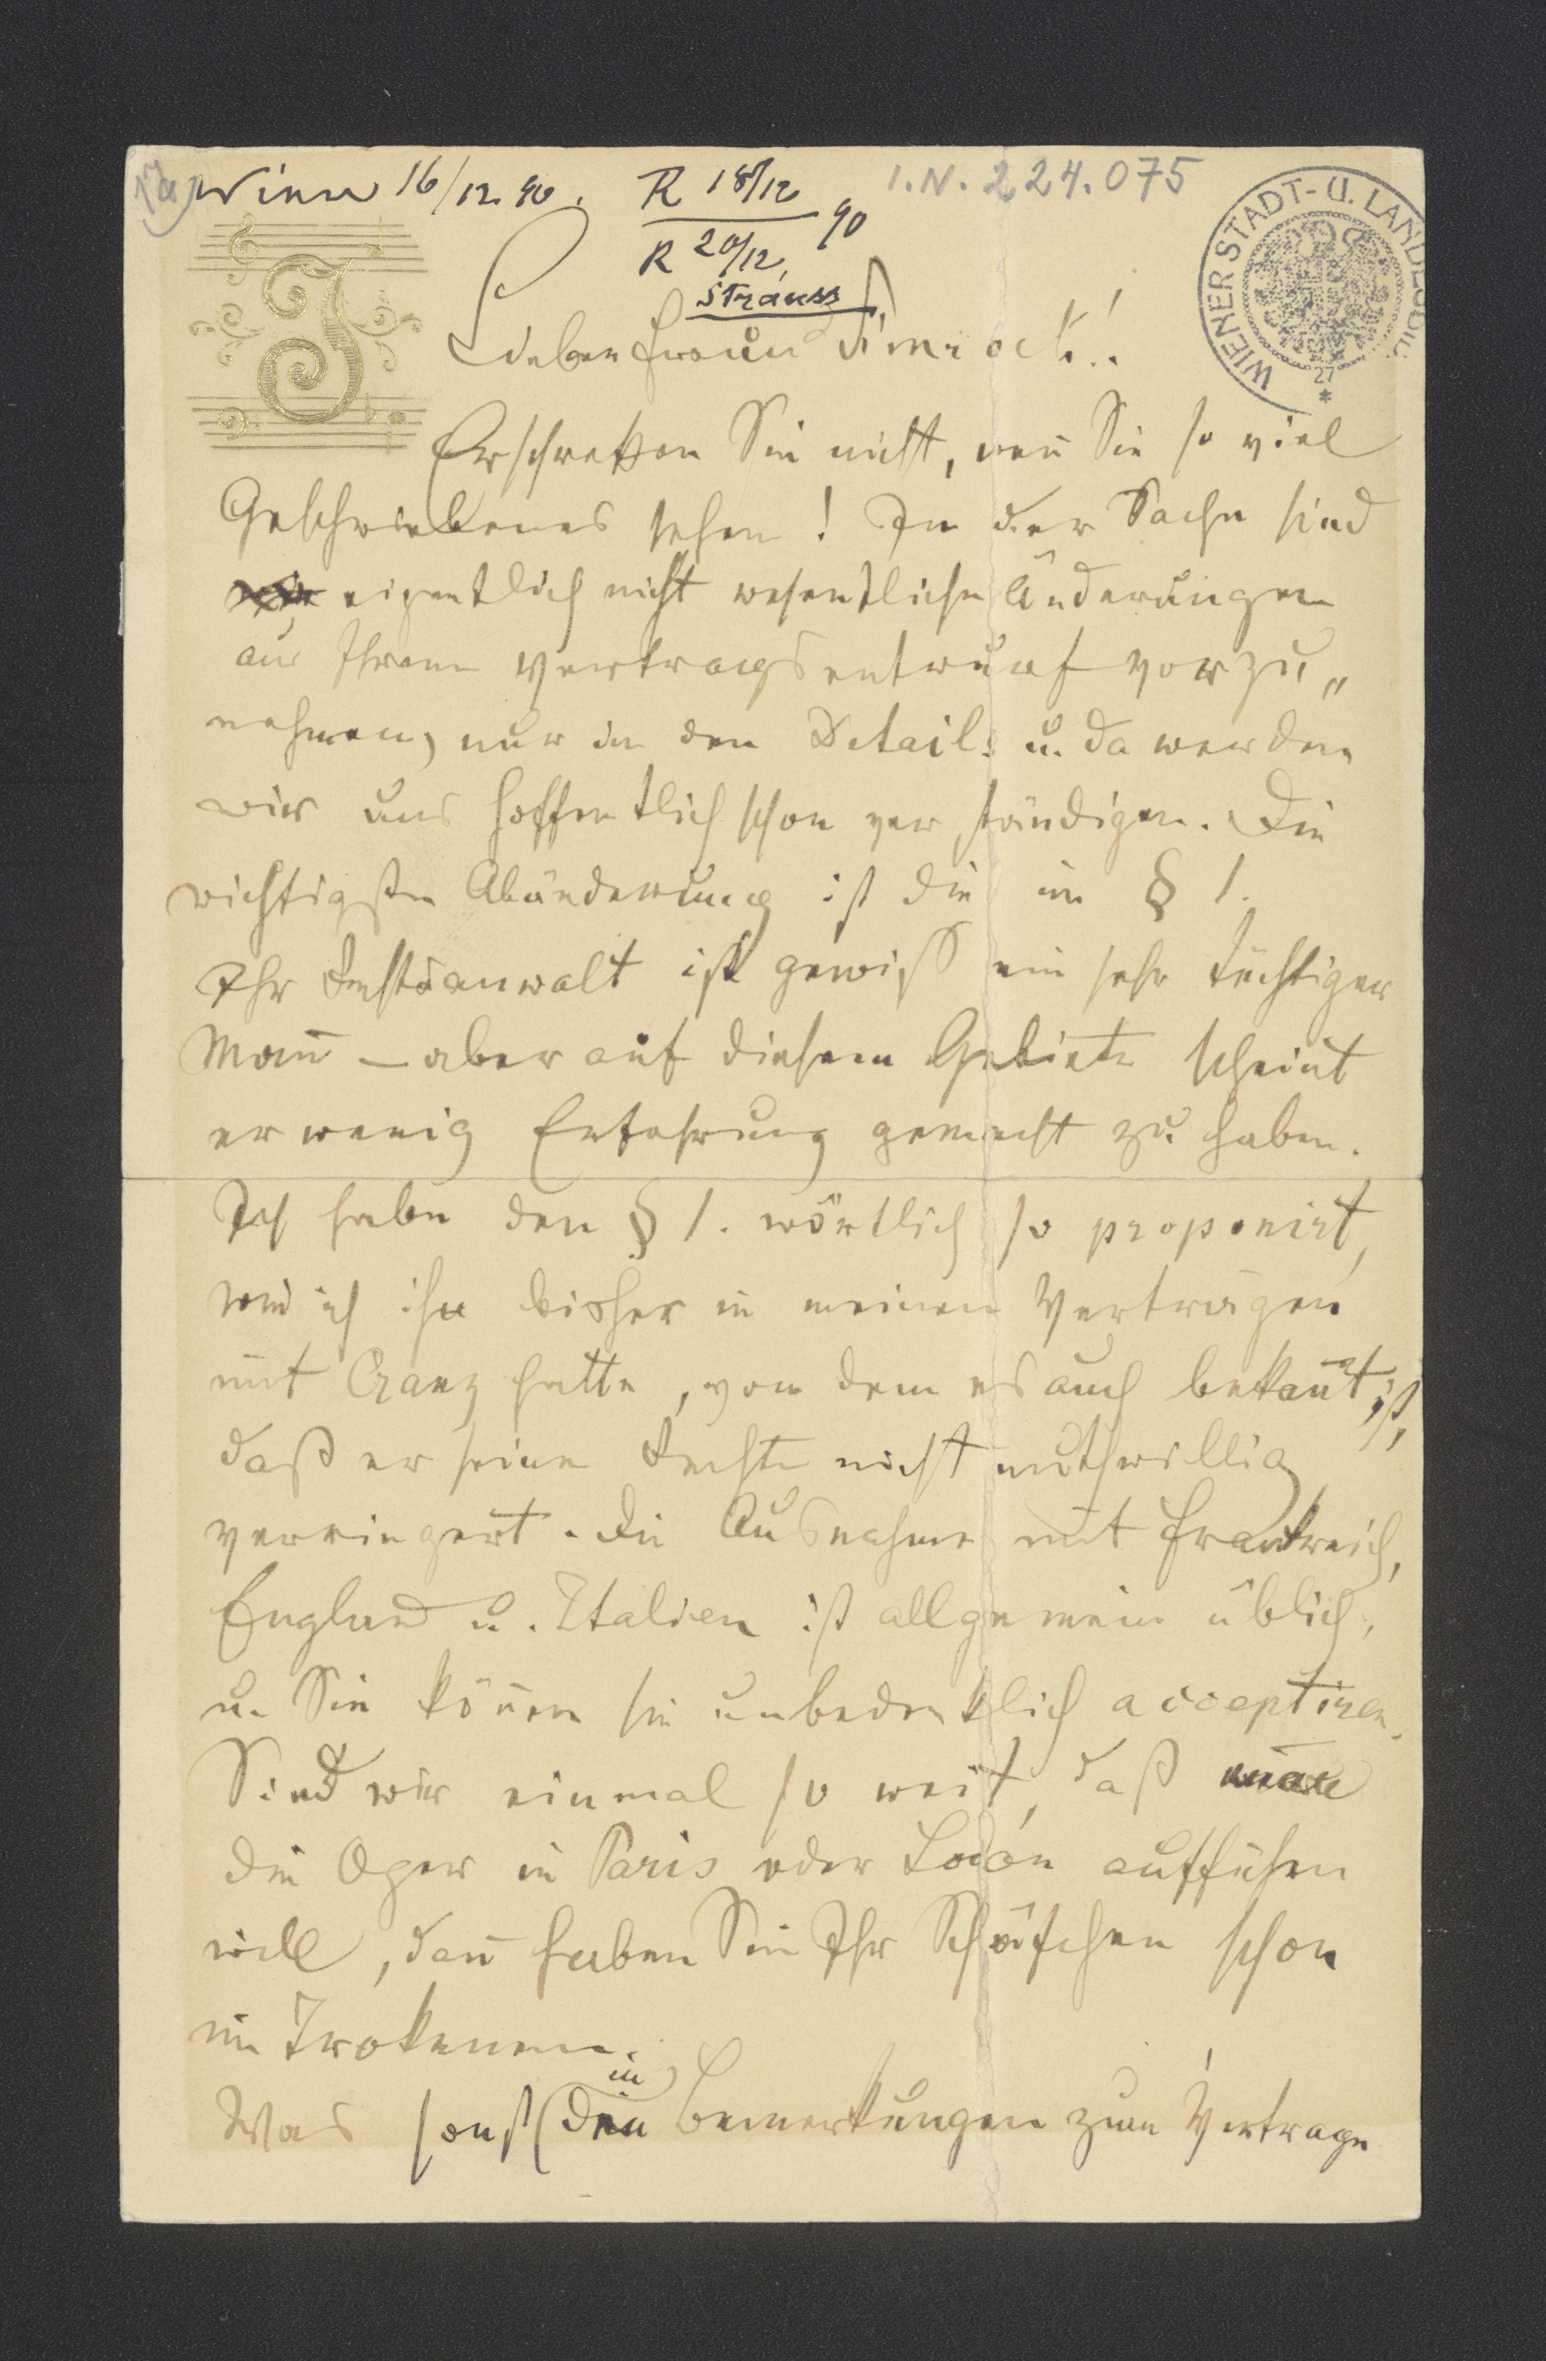 Wien 16/12.90. R 18/12 I.N. 224.075
R 20/12, 90
Strauss
WIENER STADT- U. LANDESBIBL.
27
J
Lieber Freund Simrock!
Erschrekken Sie nicht, wen̄ Sie so viel
Geschriebenes sehen! In der Sache sind
eigentlich nicht wesentliche Änderungen
an Ihrem Vertragsentwurf vorzu„
nehmen, nur in den Details u. da werden
wir uns hoffentlich schon verständigen. Die
wichtigste Abänderung ist die im § 1.
Ihr Rechtsanwalt ist gewiß ein sehr tüchtiger
Man̄ – aber auf diesem Gebiete scheint
er wenig Erfahrung gemacht zu haben.
Ich habe den § 1. wörtlich so proponirt,
wie ich ihn bisher in meinen Verträgen
mit Cranz hatte, von dem es auch bekan̄t ist,
daß er seine Rechte nicht muthwillig
verringert. Die Ausnahme mit Frankreich,
England u. Italien ist allgemein üblich,
u. Sie kön̄en sie unbedenklich acceptiren.
Sind wir einmal so weit, daß man
die Oper in Paris oder London aufführen
will, dan̄ haben Sie Ihr Schäfchen schon
im Trokenen.
in
Was sonst den Bemerkungen zum Vertrage